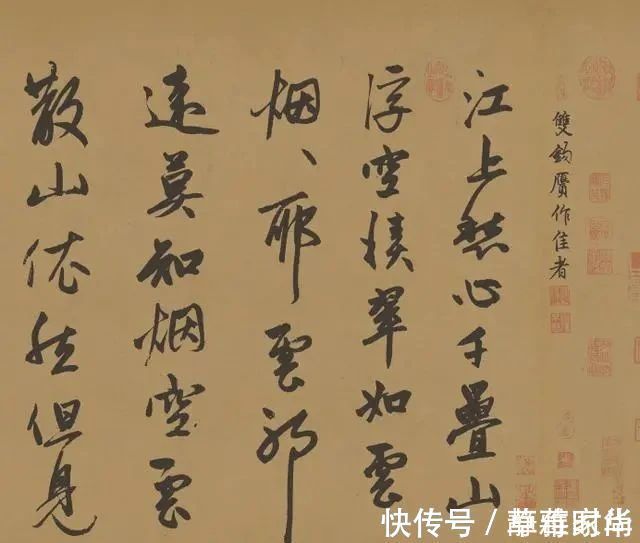 雙鈎贗作佳者
江上愁心千疊山
浮空積翠如雲
烟、耶雲耶
遠莫知烟空雲
散山依然但見
快传号／